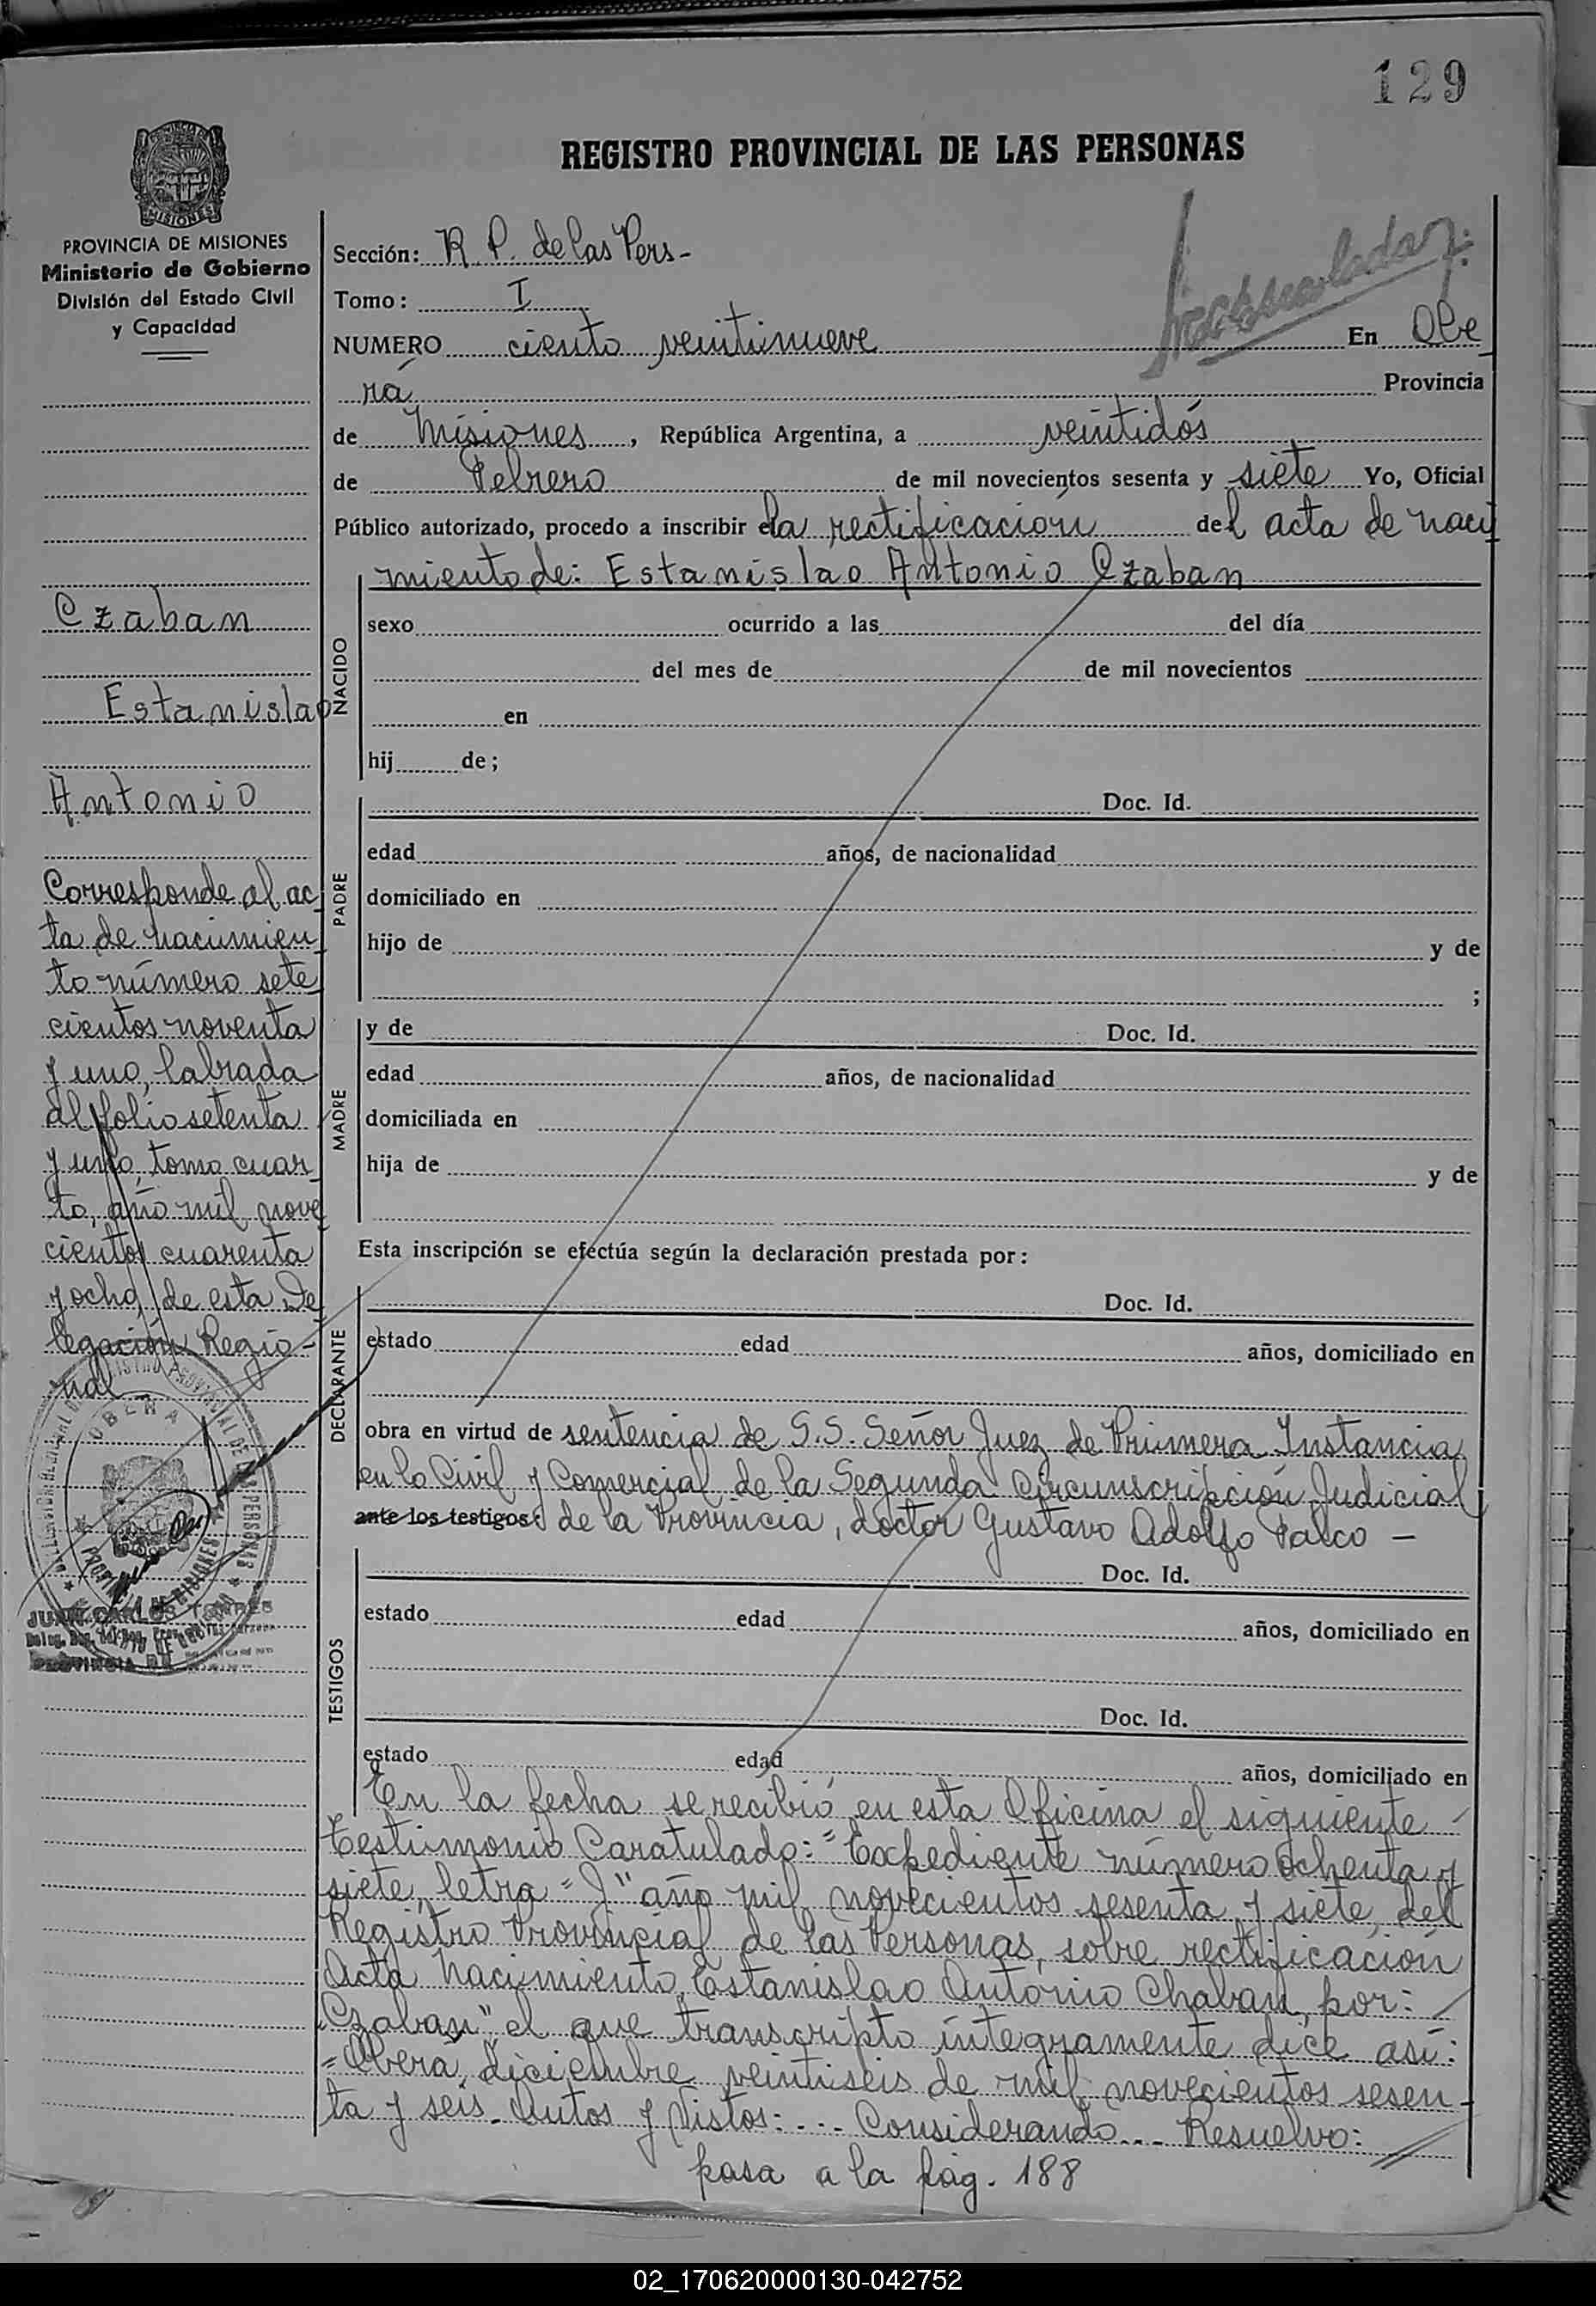 129
REGISTRO PROVINCIAL DE LAS PERSONAS
PROVINCIA DE MISIONES
Ministerio de Gobierno
División del Estado Civil
y Capacidad
Czaban
Estanislao
Antonio
Corresponde al ac
ta de nacimien
to número sete
cientos noventa
y uno, labrada
al folio setenta
y uno, tomo cuar
to, año mil nove
cientos cuarenta
y ocho, de esta De
legación Regio-
nal
OBERA
JUAN CARLOS TORRES
Sección: R. P. de las Pers-
Tomo: I
NUMERO ciento veintinueve En Obe
rá Provincia
de Misiones, República Argentina, a veintidós
de Febrero de mil novecientos sesenta y siete Yo, Oficial
Público autorizado, procedo a inscribir la rectificación del acta de naci
miento de: Estanislao Antonio Czaban
NACIDO
sexo ocurrido a las del día
del mes de de mil novecientos
en
hij de;
PADRE
Doc. Id.
edad años, de nacionalidad
domiciliado en
hijo de y de
;
MADRE
y de Doc. Id.
edad años, de nacionalidad
domiciliada en
hija de y de
Esta inscripción se efectúa según la declaración prestada por:
DECLARANTE
Doc. Id.
estado edad años, domiciliado en
obra en virtud de sentencia de S.S. Señor Juez de Primera Instancia
en lo Civil y Comercial de la Segunda Circunscripción Judicial
ante los testigos: de la Provincia, doctor Gustavo Adolfo Palco -
TESTIGOS
Doc. Id.
estado edad años, domiciliado en
Doc. Id.
estado edad años, domiciliado en
En la fecha se recibió en esta Oficina el siguiente
Testimonio Caratulado: "Expediente número ochenta y
siete, letra "J" año mil novecientos sesenta y siete, del
Registro Provincial de las Personas, sobre rectificación
Acta Nacimiento, Estanislao Antonio Chaban, por:
"Czaban", el que transcripto íntegramente dice así:
"Oberá, diciembre veintiseis de mil novecientos sesen-
ta y seis. Autos y Vistos: ... Considerando... Resuelvo:
pasa a la pág. 188
02_170620000130-042752